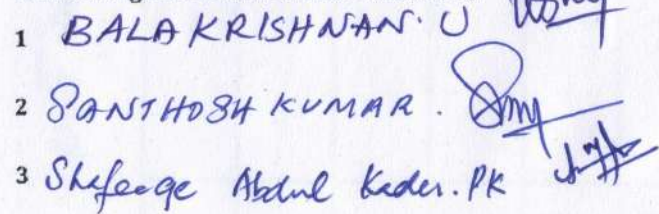 1 BALA KRISHNAN. U
2 SANTHOSH KUMAR.
3 Shafeeqe Abdul Kader. PK